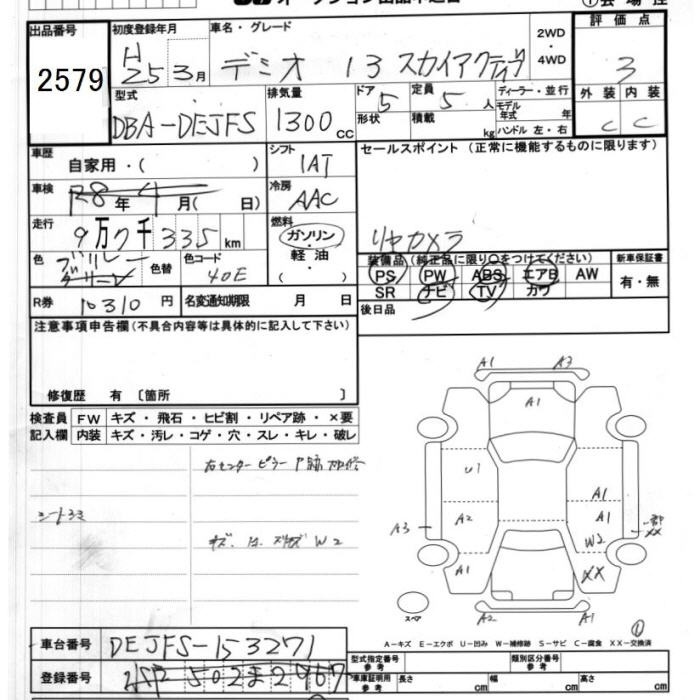 出品番号
2579
初度登録年月
H25 3月
車名・グレード
デミオ 13 スカイアクティブ
2WD
・
4WD
評価点
3
型式
DBA-DEJFS
排気量
1300 cc
ドア
5
定員
5 人
形状
積載
kg
ディーラー・並行
モデル年式 年
ハンドル 左・右
外装 内装
C C
車歴
自家用・( )
シフト
IAT
セールスポイント (正常に機能するものに限ります)
車検
R8年4月( 日)
冷房
AAC
走行
9万7千335km
燃料
ガソリン
・
軽油
リヤカメラ
色
ブルー
グリーン
色替
色コード
40E
装備品(純正品に限り〇をつけてください)
新車保証書
PS PW ABS エアB AW
SR ナビ TV カワ
有・無
R券
10310円
名変通知期限 月 日
後日品
注意事項申告欄(不具合内容等は具体的に記入して下さい)
修復歴 有 〔箇所 〕
検査員
記入欄
FW キズ・飛石・ヒビ割・リペア跡・×要
内装 キズ・汚レ・コゲ・穴・スレ・キレ・破レ
右センターピラー
W2
A1 A3
A1
U1
A1
A2
A1
A3
W2
XX
A1
A2
A1
スペア
A-キズ E-エクボ U-凹み W-補修跡 S-サビ C-腐食 XX-交換済
車台番号
DEJFS-153271
登録番号
502 ま 2967
型式指定番号
参考
類別区分番号
参考
車庫証明用
参考
長さ cm
幅 cm
高さ cm